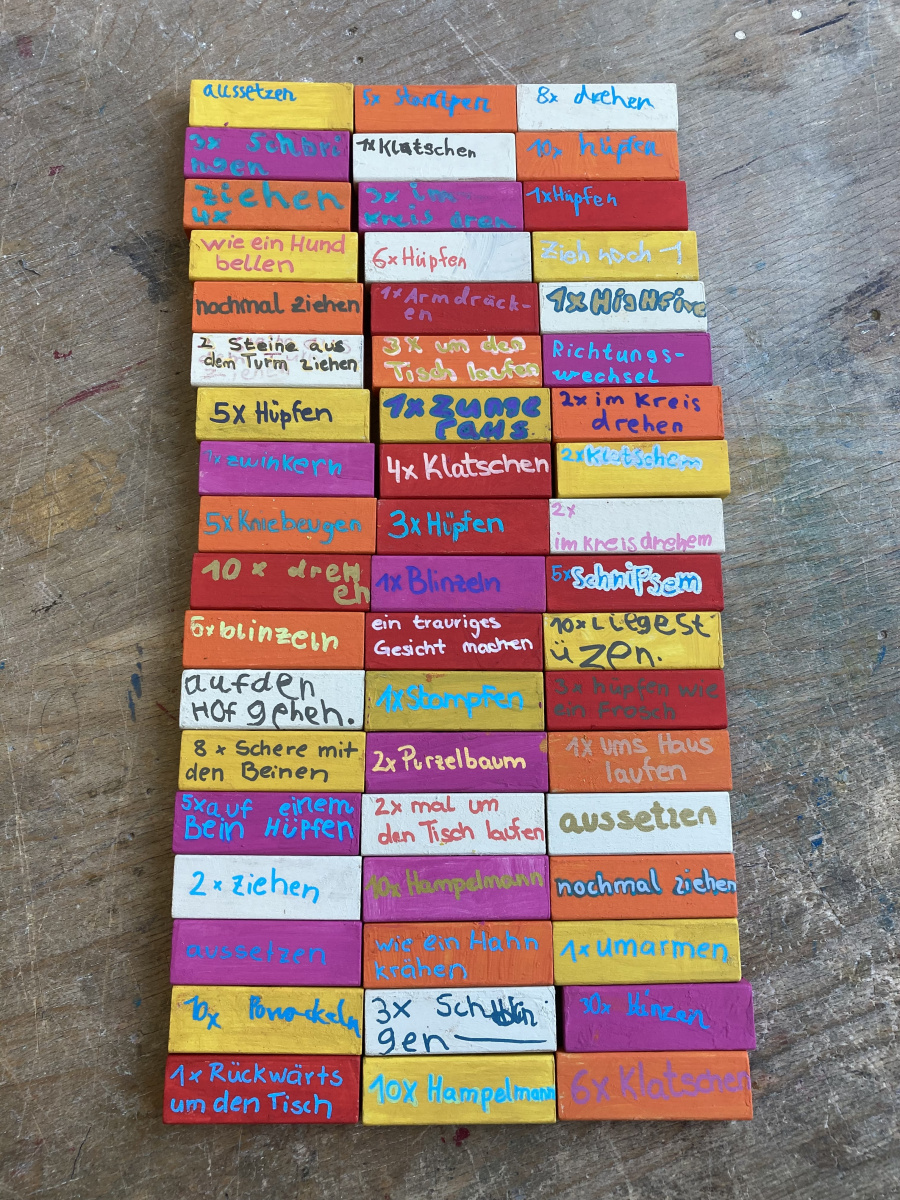 aussetzen
5x Stompfen
8x drehen
3x Schbri
ngen
1x Klatschen
10x hüpfen
ziehen
4x
3x im
kreis dren
1x Hüpfen
wie ein Hund
bellen
6x Hüpfen
Zieh noch 1
nochmal ziehen
1x Armdräck-
en
1x HigHfive
2 Steine aus
dem Turm ziehen
3x um den
Tisch laufen
Richtungs-
wechsel
5x Hüpfen
1x Zunge
raus
2x im Kreis
drehen
1x zwinkern
4x Klatschen
2x Klatschem
5x Kniebeugen
3x Hüpfen
2x
im kreis drehem
10 x dreH
eh
1x Blinzeln
5x Schnipsem
6x blinzeln
ein trauriges
Gesicht machen
10x Liegest
üzen.
aufden
HOf gehen.
1x Stompfen
3x hüpfen wie
ein Frosch
8 x Schere mit
den Beinen
2x Purzelbaum
1x ums Haus
laufen
5x auf einem
Bein Hüpfen
2x mal um
den Tisch laufen
aussetzen
2x ziehen
10x Hampelmann
nochmal ziehen
aussetzen
wie ein Hahn
krähen
1x umarmen
10x
3x Sch
gen
30x blinzeln
1x Rückwärts
um den Tisch
10x Hampelmann
6x Klatschen